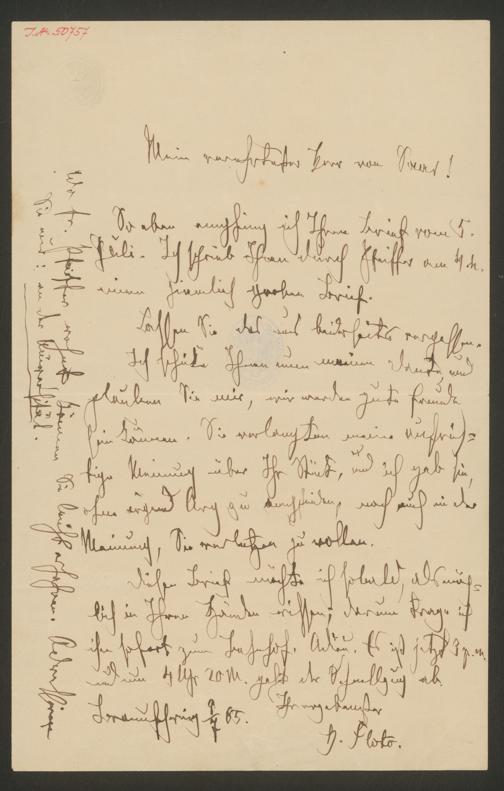 I.N. 50757
Mein verehrtester Herr von Saar!
So eben empfing ich Ihren Brief vom 5.
Juli. Ich schrieb Ihnen durch Pfeiffer am 4. M.
einen ziemlich groben Brief.
Lassen Sie das uns beiderseits vergessen.
Ich schüttle Ihnen nun meinen Dank und
glauben Sie mir, wir werden gute Freunde
sein können. Sie verlangten meine aufrich-
tige Meinung über Ihr Stück, und ich gab sie,
ohne irgend Arg zu empfinden, noch auch in der
Meinung, Sie verletzen zu wollen.
Diesen Brief möchte ich sobald, als mög-
lich in Ihren Händen wissen; darum trage ich
ihn sofort zum Bahnhof. Adieu. Es ist jetzt 3 p.m.
und um 4 Uhr 20 M. geht der Schnellzug ab.
65. Ihr ergebenster
H. Floto.
Wo Fr. Pfeiffer wohnt können Sie leicht erfahren.
Sie nur: an der